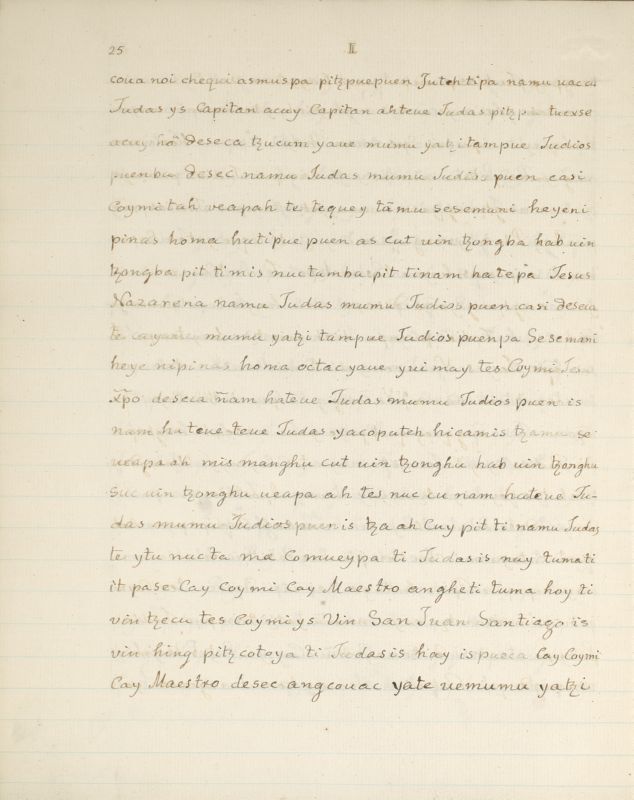 25 II
coua noi chequi asmuspa pitzpuepuen Juteh tipa namu uacu
Judas ys Capitan acuy Capitan ahteue Judas pitzpu tucxse
acuy hō deseca tzucum yaue mumu yatzitampue Judios
puenbu desec namu Judas mumu Judios puen casi
Coymitah veapah te tequey tāmu sesemani heyeni
pinas homa hutipue puen as cut uin tzongba hab uin
tzongba pit timis nuctumba pit tinam hatepa Jesus
Nazarena namu Judas mumu Judios puen casi deseca
te cayaue mumu yatzi tampue Judios puenpa Sesemani
heye nipinas homa octac yaue yui may tes Coymi Jesu
Xp̄o deseca ñam hateue Judas mumu Judios puen is
nam hateue teue Judas yacoputeh hicamis tzamu se
ueapa ah mis manghu cut uin tzonghu hab uin tzonghu
suc uin tzonghu ueapa ah tes nuc cu nam hateue Ju-
das mumu Judios puen is tza ah Cuy pit ti namu Judas
te ytu nucta ma Comueypa ti Judas is nay tumati
it pase Cay Coymi Cay Maestro angheti tuma hoy ti
vin tzecu tes Coymi ys Vin San Juan Santiago is
vin hing pitzcotoya ti Judas is hay is pueca Cay Coymi
Cay Maestro desec angcouac yate uemumu yatzi